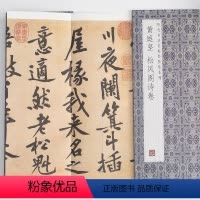 川夜闌箕斗插
屋椽我來名之
意適然老松魁
黄庭坚 松风阁诗卷
粉象优品 正品保障